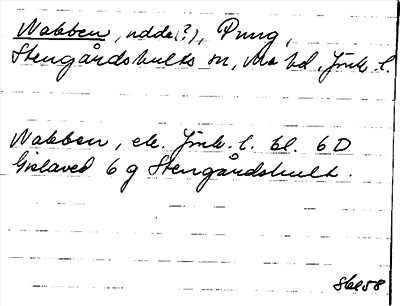 Nabben, udde(?), Pung,
Stengårdshults sn, Mo hd. Jönk. l.
Nabben, ek. Jönk. l. bl. 6 D
Gislaved 6 g Stengårdshult.